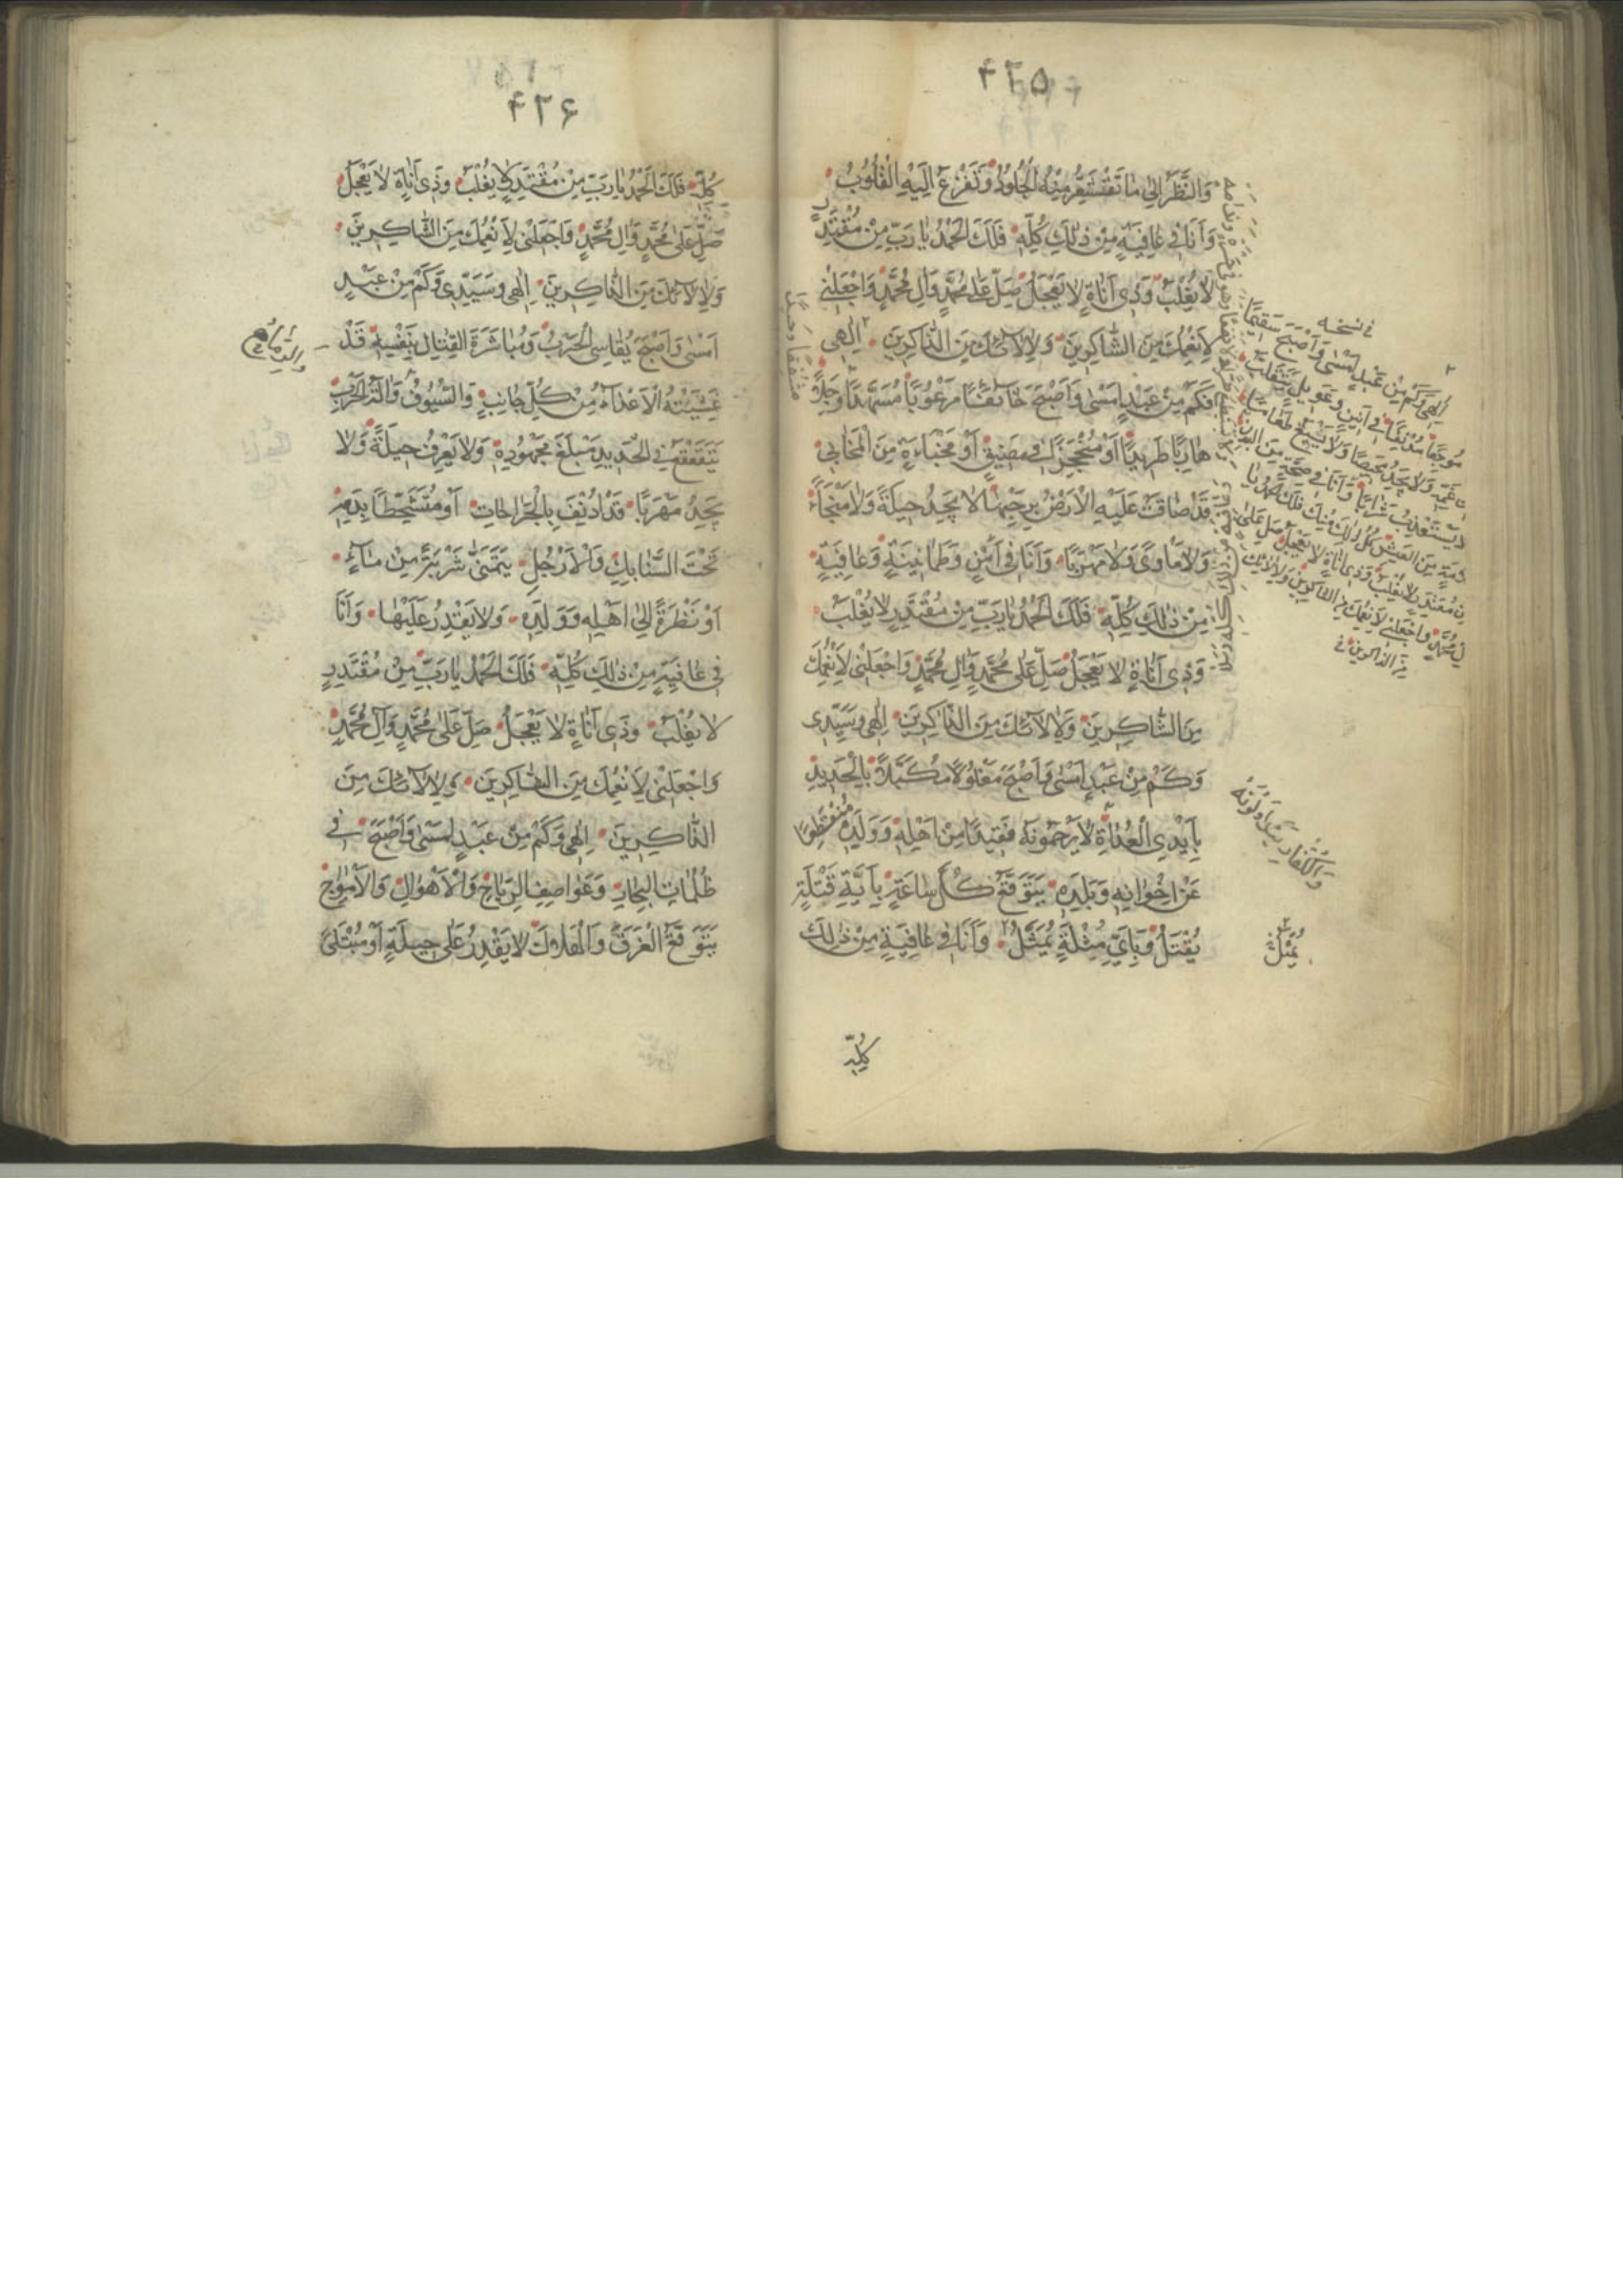 ۴۲۵
وَالنَّظَرِ اِلىٰ مٰا تَقْشَعِرُّ مِنْهُ الْجُلُودُ وَتَفْزَعُ اِلَيْهِ الْقُلُوبُ
وَاَنَا فى عٰافِيَةٍ مِنْ ذٰلِكَ كُلِّهِ فَلَكَ الْحَمْدُ يٰا رَبِّ مِنْ مُقْتَدِرٍ
لاٰ يُغْلَبُ وَذى اَنٰاةٍ لاٰ يَعْجَلُ صَلِّ عَلىٰ مُحَمَّدٍ وَاٰلِ مُحَمَّدٍ وَاجْعَلْنى
لِاَنْعُمِكَ مِنَ الشّٰاكِرينَ وَلِاٰلاٰئِكَ مِنَ الذّٰاكِرينَ اِلٰهى
وَكَمْ مِنْ عَبْدٍ اَمْسٰى وَاَصْبَحَ خٰائِفًا مَرْعُوبًا مُسَهَّدًا وَجِلاً
هٰارِبًا طَريدًا اَوْ مُنْحَجِزًا فى مَضيقٍ اَوْ مَخْبَاَةٍ مِنَ الْمَخٰابى
قَدْ ضٰاقَتْ عَلَيْهِ الْاَرْضُ بِرُحْبِهٰا لاٰ يَجِدُ حيلَةً وَلاٰ مَنْجٰاً
وَلاٰ مَأْوًى وَلاٰ مَهْرَبًا وَاَنَا فى اَمْنٍ وَطُمَأْنينَةٍ وَعٰافِيَةٍ
مِنْ ذٰلِكَ كُلِّهِ فَلَكَ الْحَمْدُ يٰا رَبِّ مِنْ مُقْتَدِرٍ لاٰ يُغْلَبُ
وَذى اَنٰاةٍ لاٰ يَعْجَلُ صَلِّ عَلىٰ مُحَمَّدٍ وَاٰلِ مُحَمَّدٍ وَاجْعَلْنى لِاَنْعُمِكَ
مِنَ الشّٰاكِرينَ وَلِاٰلاٰئِكَ مِنَ الذّٰاكِرينَ اِلٰهى وَسَيِّدى
وَكَمْ مِنْ عَبْدٍ اَمْسٰى وَاَصْبَحَ مَغْلُولًا مُكَبَّلاً بِالْحَديدِ
بِاَيْدِى الْعُدٰاةِ لاٰ يَرْحَمُونَهُ فَقيدًا مِنْ اَهْلِهِ وَوَلَدِهِ مُنْقَطِعًا
عَنْ اِخْوٰانِهِ وَبَلَدِهِ يَتَوَقَّعُ كُلَّ سٰاعَةٍ بِاَيَّةِ قَتْلَةٍ
يُقْتَلُ وَبِاَىِّ مُثْلَةٍ يُمَثَّلُ وَاَنَا فى عٰافِيَةٍ مِنْ ذٰلِكَ
كُلِّهِ
فى نسخه
اِلٰهى وَكَمْ مِنْ عَبْدٍ اَمْسٰى وَاَصْبَحَ سَقيمًا
مُوجَعًا مُدْنَفًا فى اَنينٍ وَعَويلٍ يَتَقَلَّبُ
فى غَمِّهِ وَلاٰ يَجِدُ مَحيصًا وَلاٰ يُسيغُ طَعٰامًا
وَلاٰ يَسْتَعْذِبُ شَرٰابًا وَاَنَا فى صِحَّةٍ مِنَ الْبَدَنِ
وَسَلاٰمَةٍ مِنَ الْعَيْشِ كُلُّ ذٰلِكَ مِنْكَ فَلَكَ الْحَمْدُ يٰا
رَبِّ مِنْ مُقْتَدِرٍ لاٰ يُغْلَبُ وَذى اَنٰاةٍ لاٰ يَعْجَلُ صَلِّ عَلىٰ
مُحَمَّدٍ وَاجْعَلْنى لِاَنْعُمِكَ مِنَ الشّٰاكِرينَ وَلِاٰلاٰئِكَ
مِنَ الذّٰاكِرينَ
وَالْكُفّٰارُ يَتَدٰاوَلُونَهُ
يُمَثَّلُ
۴۲۶
كُلِّهِ فَلَكَ الْحَمْدُ يٰا رَبِّ مِنْ مُقْتَدِرٍ لاٰ يُغْلَبُ وَذى اَنٰاةٍ لاٰ يَعْجَلُ
صَلِّ عَلىٰ مُحَمَّدٍ وَاٰلِ مُحَمَّدٍ وَاجْعَلْنى لِاَنْعُمِكَ مِنَ الشّٰاكِرينَ
وَلِاٰلاٰئِكَ مِنَ الذّٰاكِرينَ اِلٰهى وَسَيِّدى وَكَمْ مِنْ عَبْدٍ
اَمْسٰى وَاَصْبَحَ يُقٰاسِى الْحَرْبَ وَمُبٰاشَرَةَ الْقِتٰالِ بِنَفْسِهِ قَدْ
غَشِيَتْهُ الْاَعْدٰاءُ مِنْ كُلِّ جٰانِبٍ وَالسُّيُوفُ وَاٰلَةُ الْحَرْبِ
يَتَقَعْقَعُ فِى الْحَديدِ مَبْلَغَ مَجْهُودِهِ وَلاٰ يَعْرِفُ حيلَةً وَلاٰ
يَجِدُ مَهْرَبًا قَدْ اُدْنِفَ بِالْجِرٰاحٰاتِ اَوْ مُتَشَحِّطًا بِدَمِهِ
تَحْتَ السَّنٰابِكِ وَالْاَرْجُلِ يَتَمَنّٰى شَرْبَةً مِنْ مٰاءٍ
اَوْ نَظْرَةً اِلىٰ اَهْلِهِ وَوَلَدِهِ وَلاٰ يَقْدِرُ عَلَيْهٰا وَاَنَا
فى عٰافِيَةٍ مِنْ ذٰلِكَ كُلِّهِ فَلَكَ الْحَمْدُ يٰا رَبِّ مِنْ مُقْتَدِرٍ
لاٰ يُغْلَبُ وَذى اَنٰاةٍ لاٰ يَعْجَلُ صَلِّ عَلىٰ مُحَمَّدٍ وَاٰلِ مُحَمَّدٍ
وَاجْعَلْنى لِاَنْعُمِكَ مِنَ الشّٰاكِرينَ وَلِاٰلاٰئِكَ مِنَ
الذّٰاكِرينَ اِلٰهى وَكَمْ مِنْ عَبْدٍ اَمْسٰى وَاَصْبَحَ فى
ظُلُمٰاتِ الْبِحٰارِ وَعَوٰاصِفِ الرِّيٰاحِ وَالْاَهْوٰالِ وَالْاَمْوٰاجِ
يَتَوَقَّعُ الْغَرَقَ وَالْهَلاٰكَ لاٰ يَقْدِرُ عَلىٰ حيلَةٍ اَوْ مُبْتَلىً
وَالرِّمٰاحُ